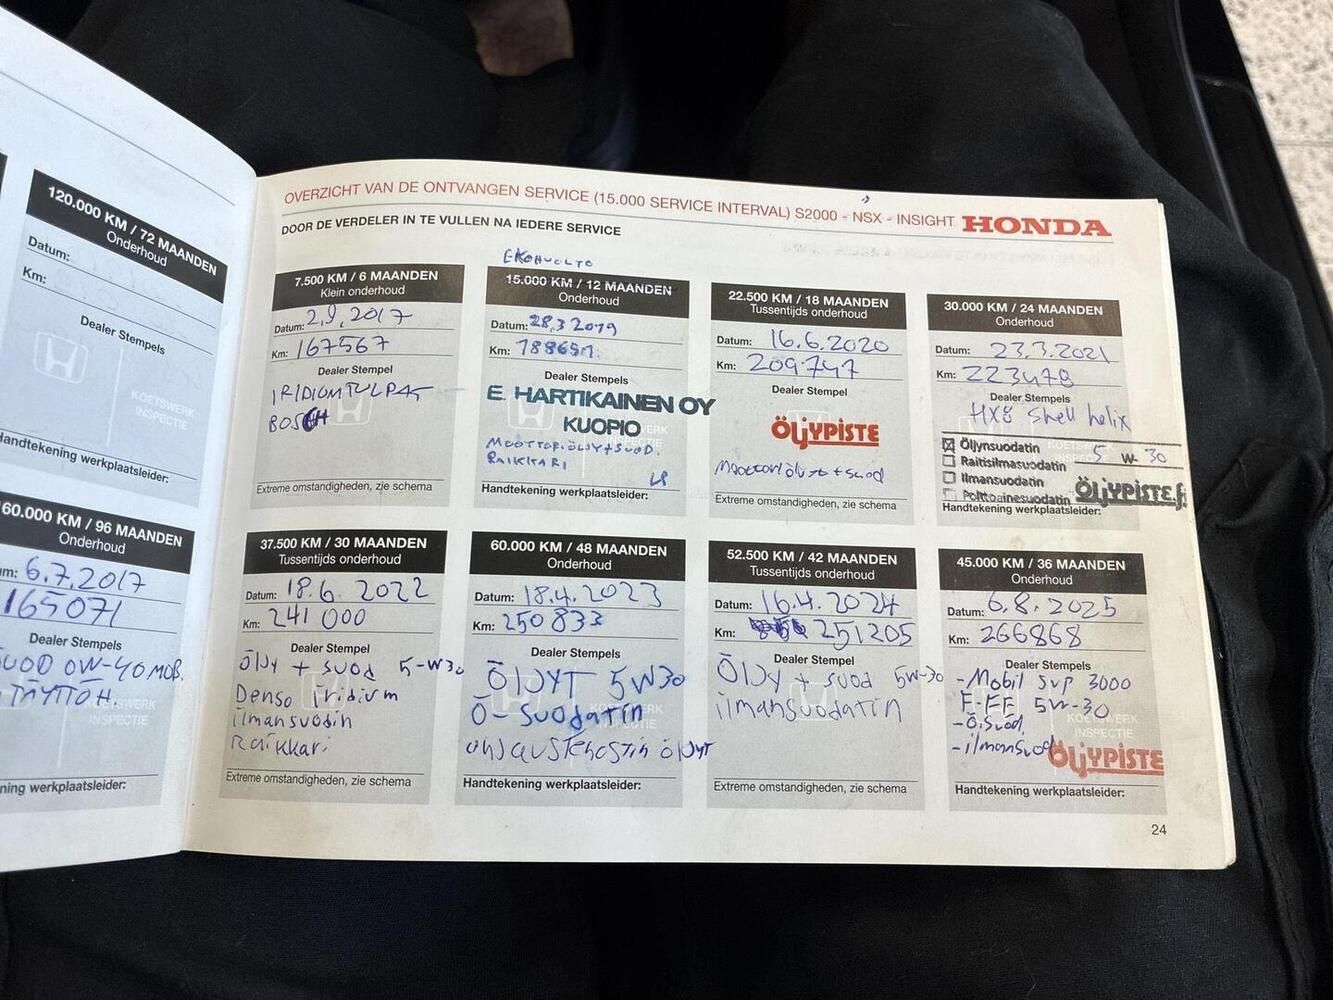 120.000 KM / 72 MAANDEN
Onderhoud
Datum:
Km:
Dealer Stempels
KOETSWERK
INSPECTIE
Handtekening werkplaatsleider:
60.000 KM / 96 MAANDEN
Onderhoud
m: 6.7.2017
165071
Dealer Stempels
UOD 0W-40 MOB.
TÄYTTÖH
KOETSWERK
INSPECTIE
ning werkplaatsleider:
OVERZICHT VAN DE ONTVANGEN SERVICE (15.000 SERVICE INTERVAL) S2000 - NSX - INSIGHT HONDA
DOOR DE VERDELER IN TE VULLEN NA IEDERE SERVICE
7.500 KM / 6 MAANDEN
Klein onderhoud
Datum: 2.9.2017
Km: 167567
Dealer Stempel
IRIDIUMTULPAT
BOSCH
Extreme omstandigheden, zie schema
EKOHUOLTO
15.000 KM / 12 MAANDEN
Onderhoud
Datum: 28.3 2019
Km:
Dealer Stempels
E. HARTIKAINEN OY
KUOPIO
MOOTTORIÖLJY+SUOD.
RAIKKARI
Handtekening werkplaatsleider:
22.500 KM / 18 MAANDEN
Tussentijds onderhoud
Datum: 16.6.2020
Km: 209747
Dealer Stempel
ÖLJYPISTE
Moottoriöljyt + suod
Extreme omstandigheden, zie schema
30.000 KM / 24 MAANDEN
Onderhoud
Datum: 23.3.2021
Km: 223478
Dealer Stempels
HX8 Shell helix
Öljynsuodatin 5 W- 30
Raitisilmasuodatin
Ilmansuodatin
Polttoainesuodatin ÖLJYPISTE.fi
Handtekening werkplaatsleider:
37.500 KM / 30 MAANDEN
Tussentijds onderhoud
Datum: 18.6. 2022
Km: 241 000
Dealer Stempel
Öljy + suod 5-W30
Denso iridium
ilmansuodin
Raikkari
Extreme omstandigheden, zie schema
60.000 KM / 48 MAANDEN
Onderhoud
Datum: 18.4.2023
Km: 250833
Dealer Stempels
ÖLJYT 5W30
Ö-SUODATIN
OHJAUSTEHOSTIN ÖLJYT
Handtekening werkplaatsleider:
52.500 KM / 42 MAANDEN
Tussentijds onderhoud
Datum: 16.4.2024
Km: 251205
Dealer Stempel
ÖLJY + suod 5W-30
ilmansuodatin
Extreme omstandigheden, zie schema
45.000 KM / 36 MAANDEN
Onderhoud
Datum: 6.8.2025
Km: 266868
Dealer Stempels
-Mobil Sup 3000
F-FE 5W-30
-ö.suod.
-ilmansuod
ÖLJYPISTE
KOETSWERK
INSPECTIE
Handtekening werkplaatsleider:
24